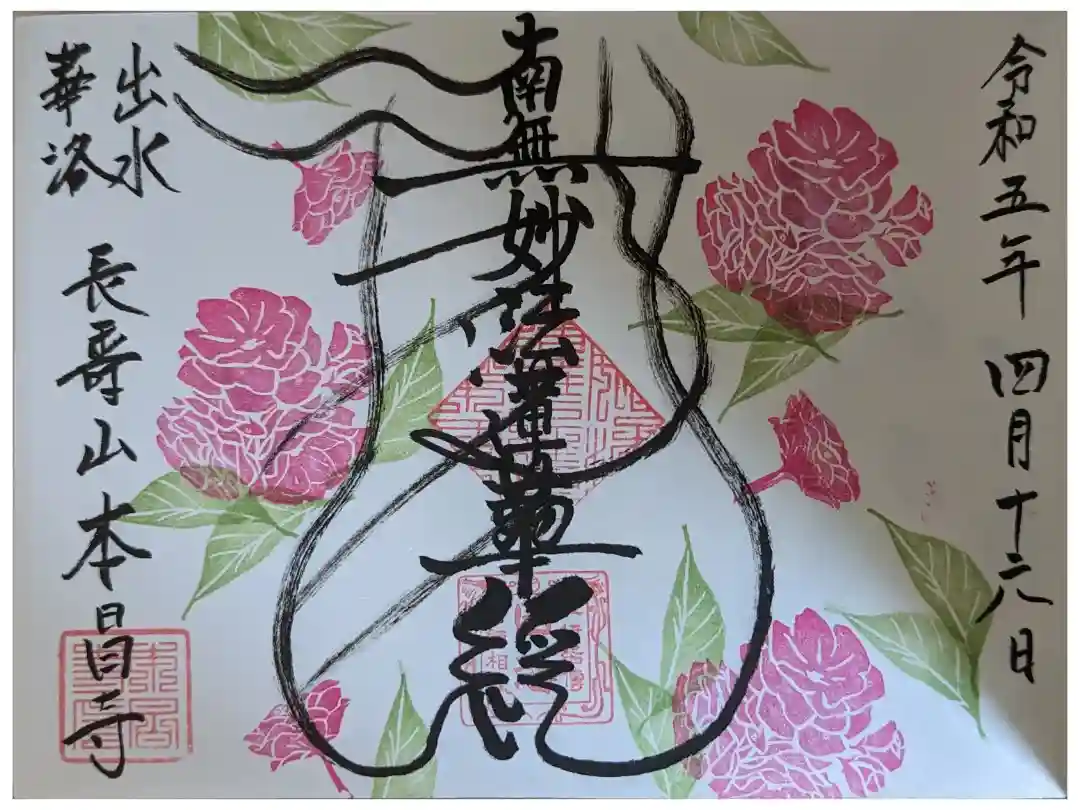 令和五年 四月十六日
南無妙法蓮華經
出水
華洛
長壽山本昌寺